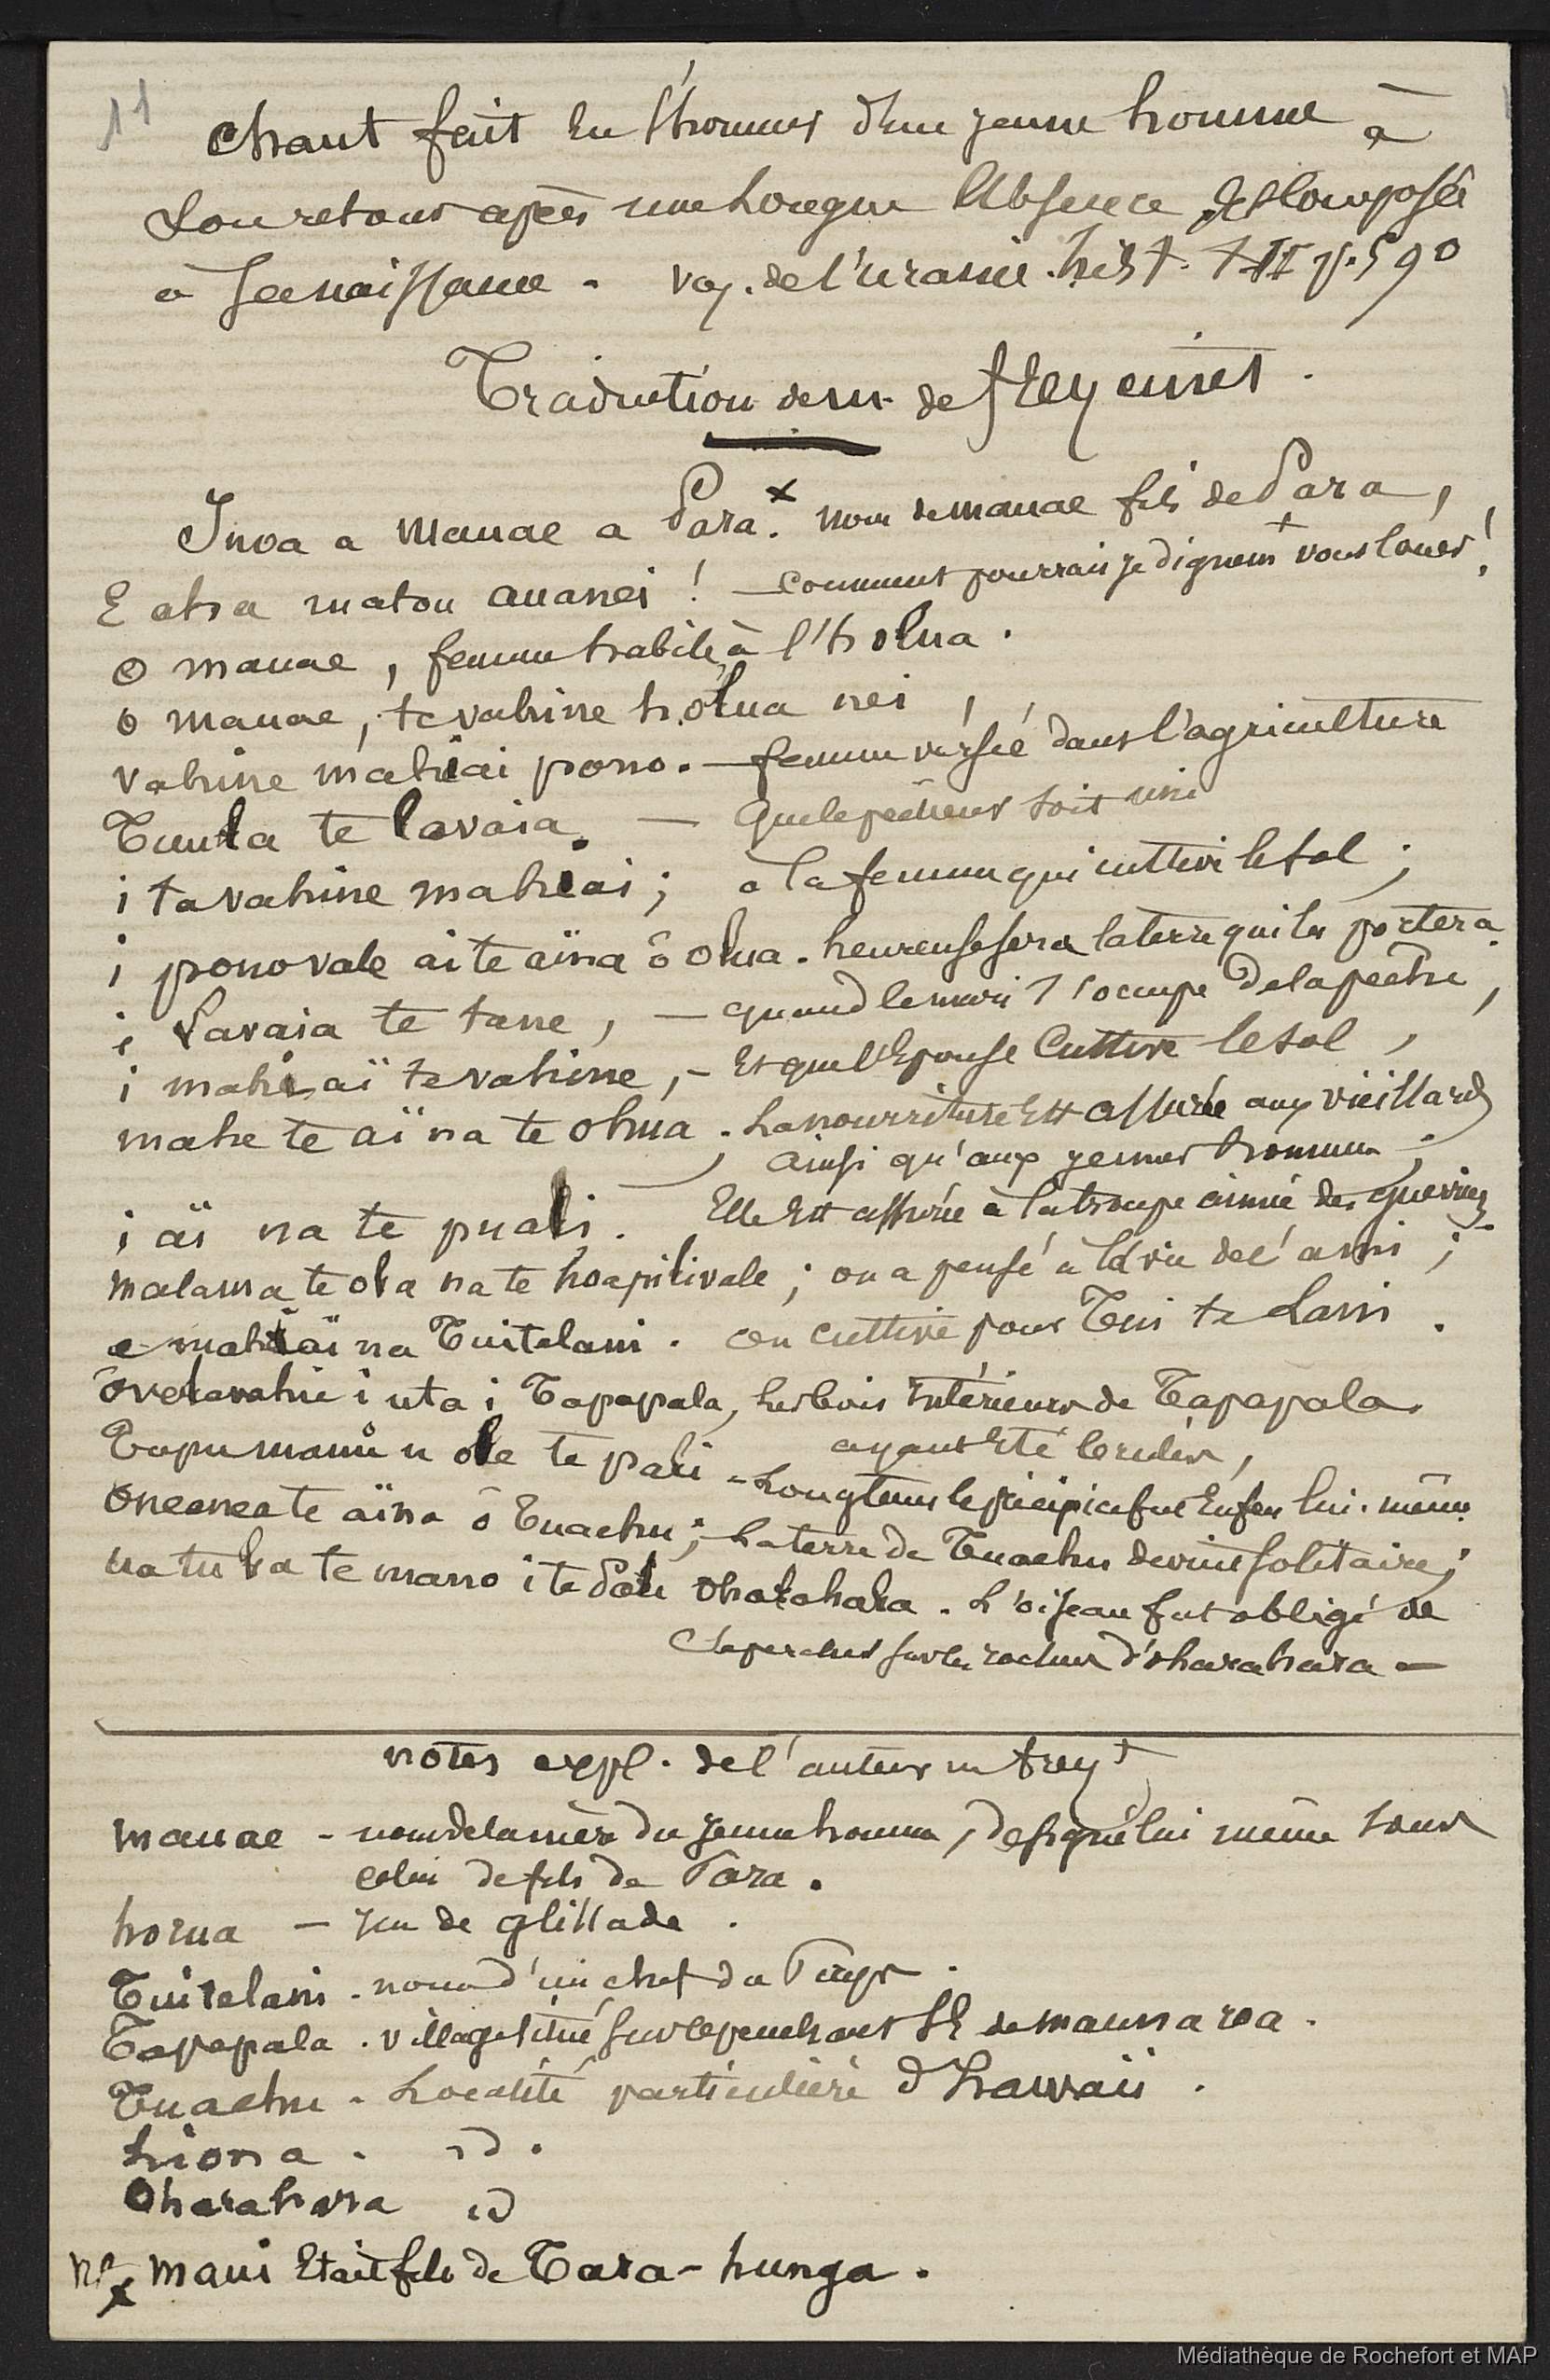 11
Chant fait en l'honneur d'un jeune homme à
Son retour après une Longue Absence, Et Composé
à Sa naissance - voy. de l'uranie. hist. t. II p. 590
Traduction de m. de frEycinet.
Inoa a Manae a Para. x nom de manae fils de Para,
E aha matou auanei ! - comment pourrais je dignemt vous louer !
O manae, femme habile à l'holua.
o manae, te vahine holua nei,
vahine mahiai pono. - femme versée dans l'agriculture
Tuula te lavaia. - Que le pêcheur soit uni
i ta vahine mahiai ; à la femme qui cultive le sol ;
i ponovale ai te aïna ô olua. heureuse sera la terre qui les portera.
i Lavaia te tane, - quand le mari s'occupe de la pêche,
i mahi,aï te vahine, - Et que l'Epouse Cultive le sol,
mahe te aï na te ohua. La nourriture Est assurée aux vieillards
ainsi qu'aux jeunes hommes ;
i aï na te puali. Elle Est assurée à la troupe aimée des guerriers.
malama te ola na te hoapilivale ; on a pensé à la vie de l'ami ;
e mahiaï na Tuitelani. on cultive pour Tui te Lani.
ovelavahie i uta i Tapapala, Les bois intérieurs de Tapapala
ayant Eté brulés,
Eupu manu u ole te pali - Longtems le précipice fut En feu lui-même.
Oneanea te aïna ô Tuaehu ; La terre de Tuaehu devint solitaire ;
ua tula te mano i te Pali Oharahara. L'oiseau fut obligé de
Se percher sur les rochers d'oharahara -
notes expl. de l'auteur m freyt
manae - nom de la mère du jeune homme, désigné lui même sous
celui de fils de Para.
horua - jeu de glissade.
Tuitelani. nom d'un chef du Pays.
Tapapala. village situé sur le penchant SE de mauna roa.
Tuaehu - Localité particulière d'hawaii.
Liona. id.
Oharahara id
Na x maui Etait fils de Tara-hunga.
Médiathèque de Rochefort et MAP